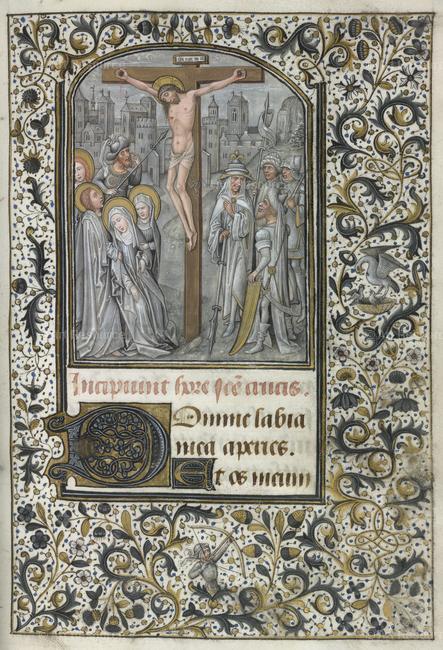 Incipiunt hore sc̄e crucis.
Domine labia
mea aperies.
Et os meum